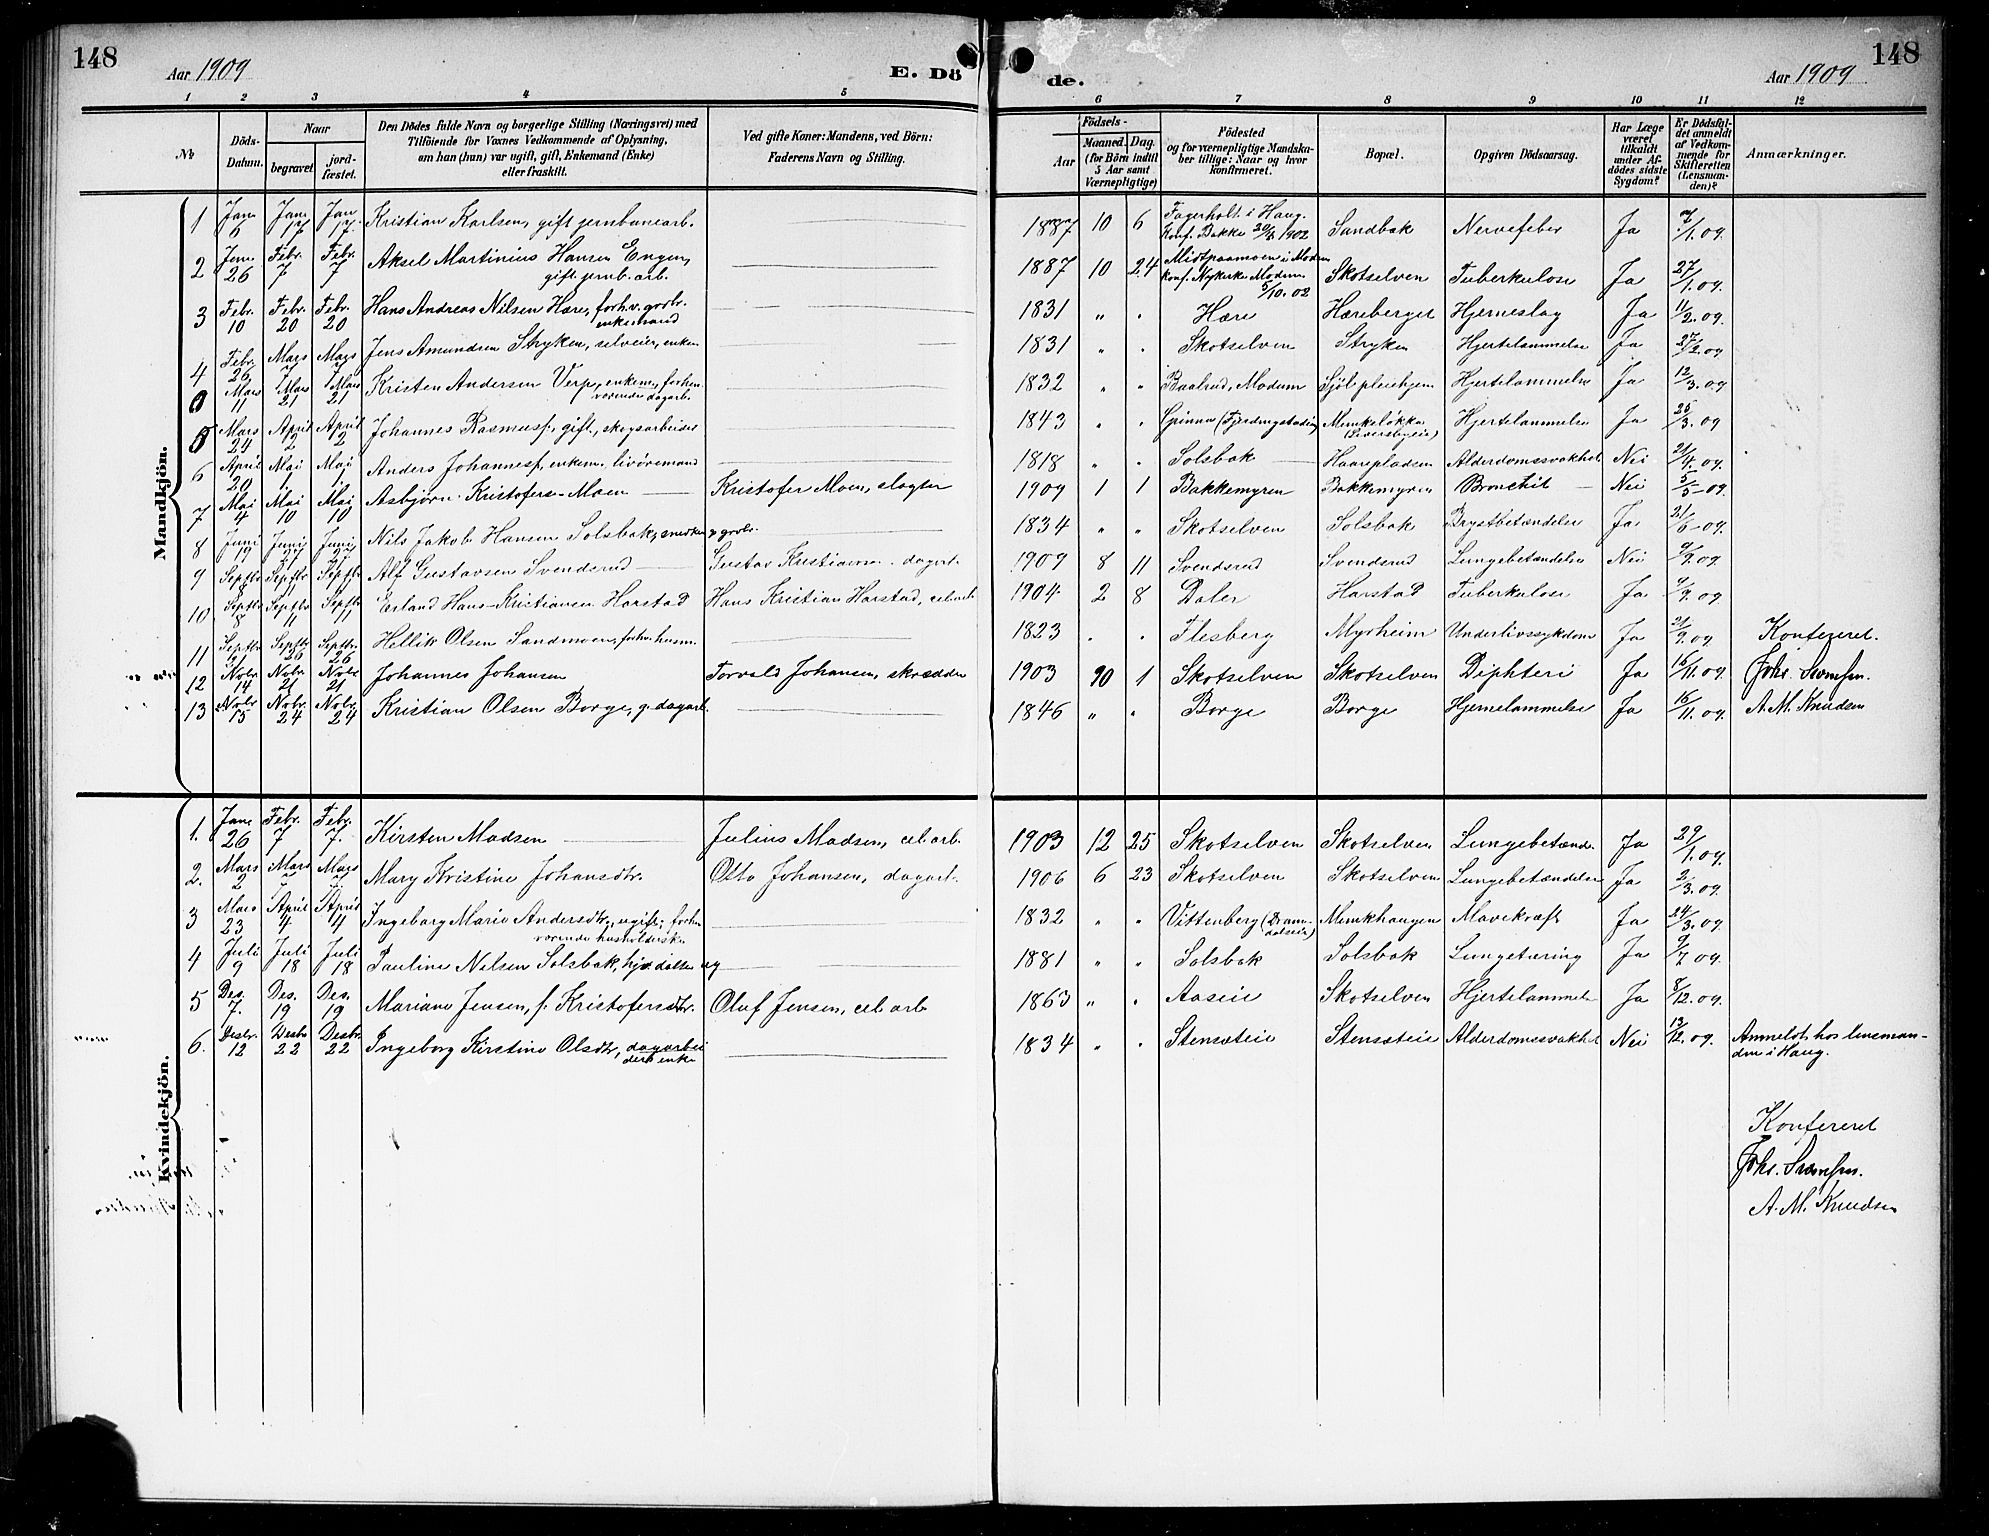 148
Aar 1909
E. Dö
de.
Aar 1909
148
1 2 3 4 5 6 7 8 9 10 11 12
No
Döds-Datum.
Naar
begravet
jordfæstet.
Den Dödes fulde Navn og borgerlige Stilling (Næringsvei) med
Tilföiende for Voxnes Vedkommende af Oplysning,
om han (hun) var ugift, gift, Enkemand (Enke)
eller fraskilt.
Ved gifte Koner: Mandens, ved Börn:
Faderens Navn og Stilling.
Födsels-
Aar
Maaned. Dag.
(for Börn indtil
5 Aar samt
Værnepligtige)
Födested
og for værnepligtige Mandska-
ber tillige: Naar og hvor
konfirmeret.
Bopæl.
Opgiven Dödsaarsag.
Har Læge
været
tilkaldt
under Af-
dödes sidste
Sygdom?
Er Dödsfal-
det anmeldt
af Vedkom-
mende for
Skifteretten
(Lensman-
den)?
Anmærkninger.
Mandkjön.
1 Jan. 6 Jan. 17 Jan. 17. Kristian Karlsen, gift jernbanearb. 1887 10 6 Fagerholt i Haug. Konf. Bakke 1902 Sandbak Nervefeber Ja 7/1.09.
2 Jan. 26 Febr. 7 Febr. 7 Aksel Martinius Hansen Engen, gift jernb. arb. 1887 10 24 Midtpaamoen i Modum konf. Nykirke Modum 5/10.02 Skotselven Tuberkulose Ja 27/1.09.
3 Febr. 10 Febr. 20 Febr. 20 Hans Andreas Nilsen Hære, forhv. grbr. enkemand 1831 " " Hære Hæreberget Hjerneslag Ja 11/2.09.
4 Febr. 26 Mars 7 Mars 7 Jens Amundsen Stryken, selveier, enkem 1831 " " Skotselven Stryken Hjertelammelse Ja 27/2.09
Mars 11 Mars 21 Mars 21 Kristen Andersen Verp, enkem., forhenværende dagarb. 1832 " " Baalsrud, Modum Sjöl pleiehjem Hjertelammelse Ja 12/3.09
Mars 24 April 2 April 2 Johannes Rasmuss., gift, skogsarbeider 1843 " " Munkeløkka Hjertelammelse Ja 25/3.09
6 April 20 Mai 1 Mai 1 Anders Johanness., enkem., livöremand 1818 " " Solsbak Haarepladsen Alderdomssvakhet Nei 21/4.09.
7 Mai 4 Mai 10 Mai 10 Asbjørn Kristofers. Moen Kristofer Moen, slagter 1909 1 1 Bakkemyren Bakkemyren Bronchit Nei 5/5-09.
8 Juni 19 Juni 27 Juni 27 Nils Jakob Hansen Solsbak, snedker g. grbr. 1834 " " Skotselven Solsbak Brystbetændelse Ja 21/6-09
9 Septbr. Septbr. Septbr. Alf Gustavsen Svendsrud Gustav Kristians. dagarb. 1909 8 11 Svendsrud Svendsrud Lungebetændelse Nei 9/9.09.
10 Septbr. 8 Septbr. 11 Septbr. 11 Erland Hans-Kristiansen Harstad Hans Kristian Harstad, cel.arb. 1904 2 8 Daler Harstad Tuberkulose Ja 9/9.09
11 Septbr. Septbr. 26 Septbr. 26 Hellik Olsen Sandmoen, forhv. husm. 1823 " " Flesberg Myrheim Underlivssykdom Ja 21/9.09 Konfereret.
12 Nobr. 14 Nobr. 21 Nobr. 21 Johannes Johansen Torvald Johansen, skrædder 1903 1 Skotselven Skotselven Diphteri Ja 16/11.09.
13 Nobr. 15 Nobr. 24 Nobr. 24 Kristian Olsen Borge, g. dagarb. 1846 " " Borge Borge Hjernelammelse Ja 16/11.09. A. M. Knudsen
Kvindekjön.
1. Jan. 26 Febr. 7 Febr. 7. Kirsten Madsen Julius Madsen, cel.arb. 1903 12 25 Skotselven Skotselven Lungebetænd. Ja 29/1.09.
2. Mars 2 Mars 7 Mars 7 Mary Kristine Johansdtr. Otto Johansen, dagarb. 1906 6 23 Skotselven Skotselven Lungebetændelse Ja 2/3.09.
3 Mars 23 April 4 April 4 Ingeborg Marie Andersdtr., ugift, forhenværende husholderske 1832 " " Vittenberg (Drammen) Munkhaugen Mavekræft Ja 24/3.09.
4 Juli 9 Juli 18 Juli 18 Pauline Nilsen Solsbak, hjv. datter ug 1881 " " Solsbak Solsbak Lungetæring Ja 9/7 09.
5 Des. 7. Des. 19 Des. 19 Mariane Jensen, f. Kristofersdtr. Oluf Jensen, cel.arb 1863 " " Aaseie Skotselven Hjertelammelse Ja 8/12.09.
6. Desbr. 12 Desbr 22 Desbr. 22 Ingeborg Kirstine Olsdtr, dagarbeiders enke 1834 " " Stensæteie Stensæteie Alderdomssvakhet Nei 13/12.09. Anmeldt hos lensman-
den i Haug.
Konfereret
A. M. Knudsen